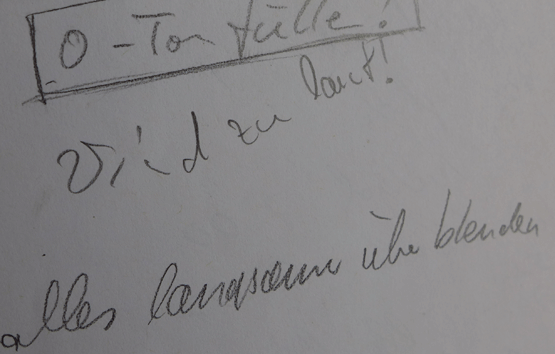 O-Ton fülle!
Wind zu laut!
alles langsam überblenden